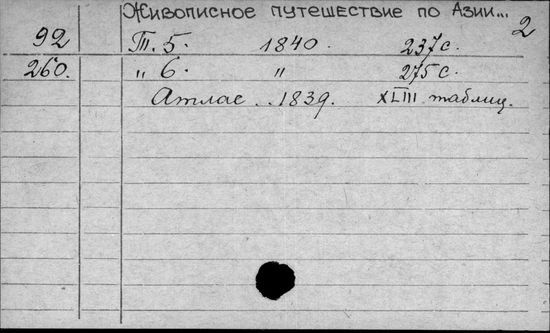 Живописное путешествие по Азии... 2
92 Т. 5. 1840. 237 с.
260. „ 6. „ 275 с.
Атлас . . 1839. XLIII таблиц.